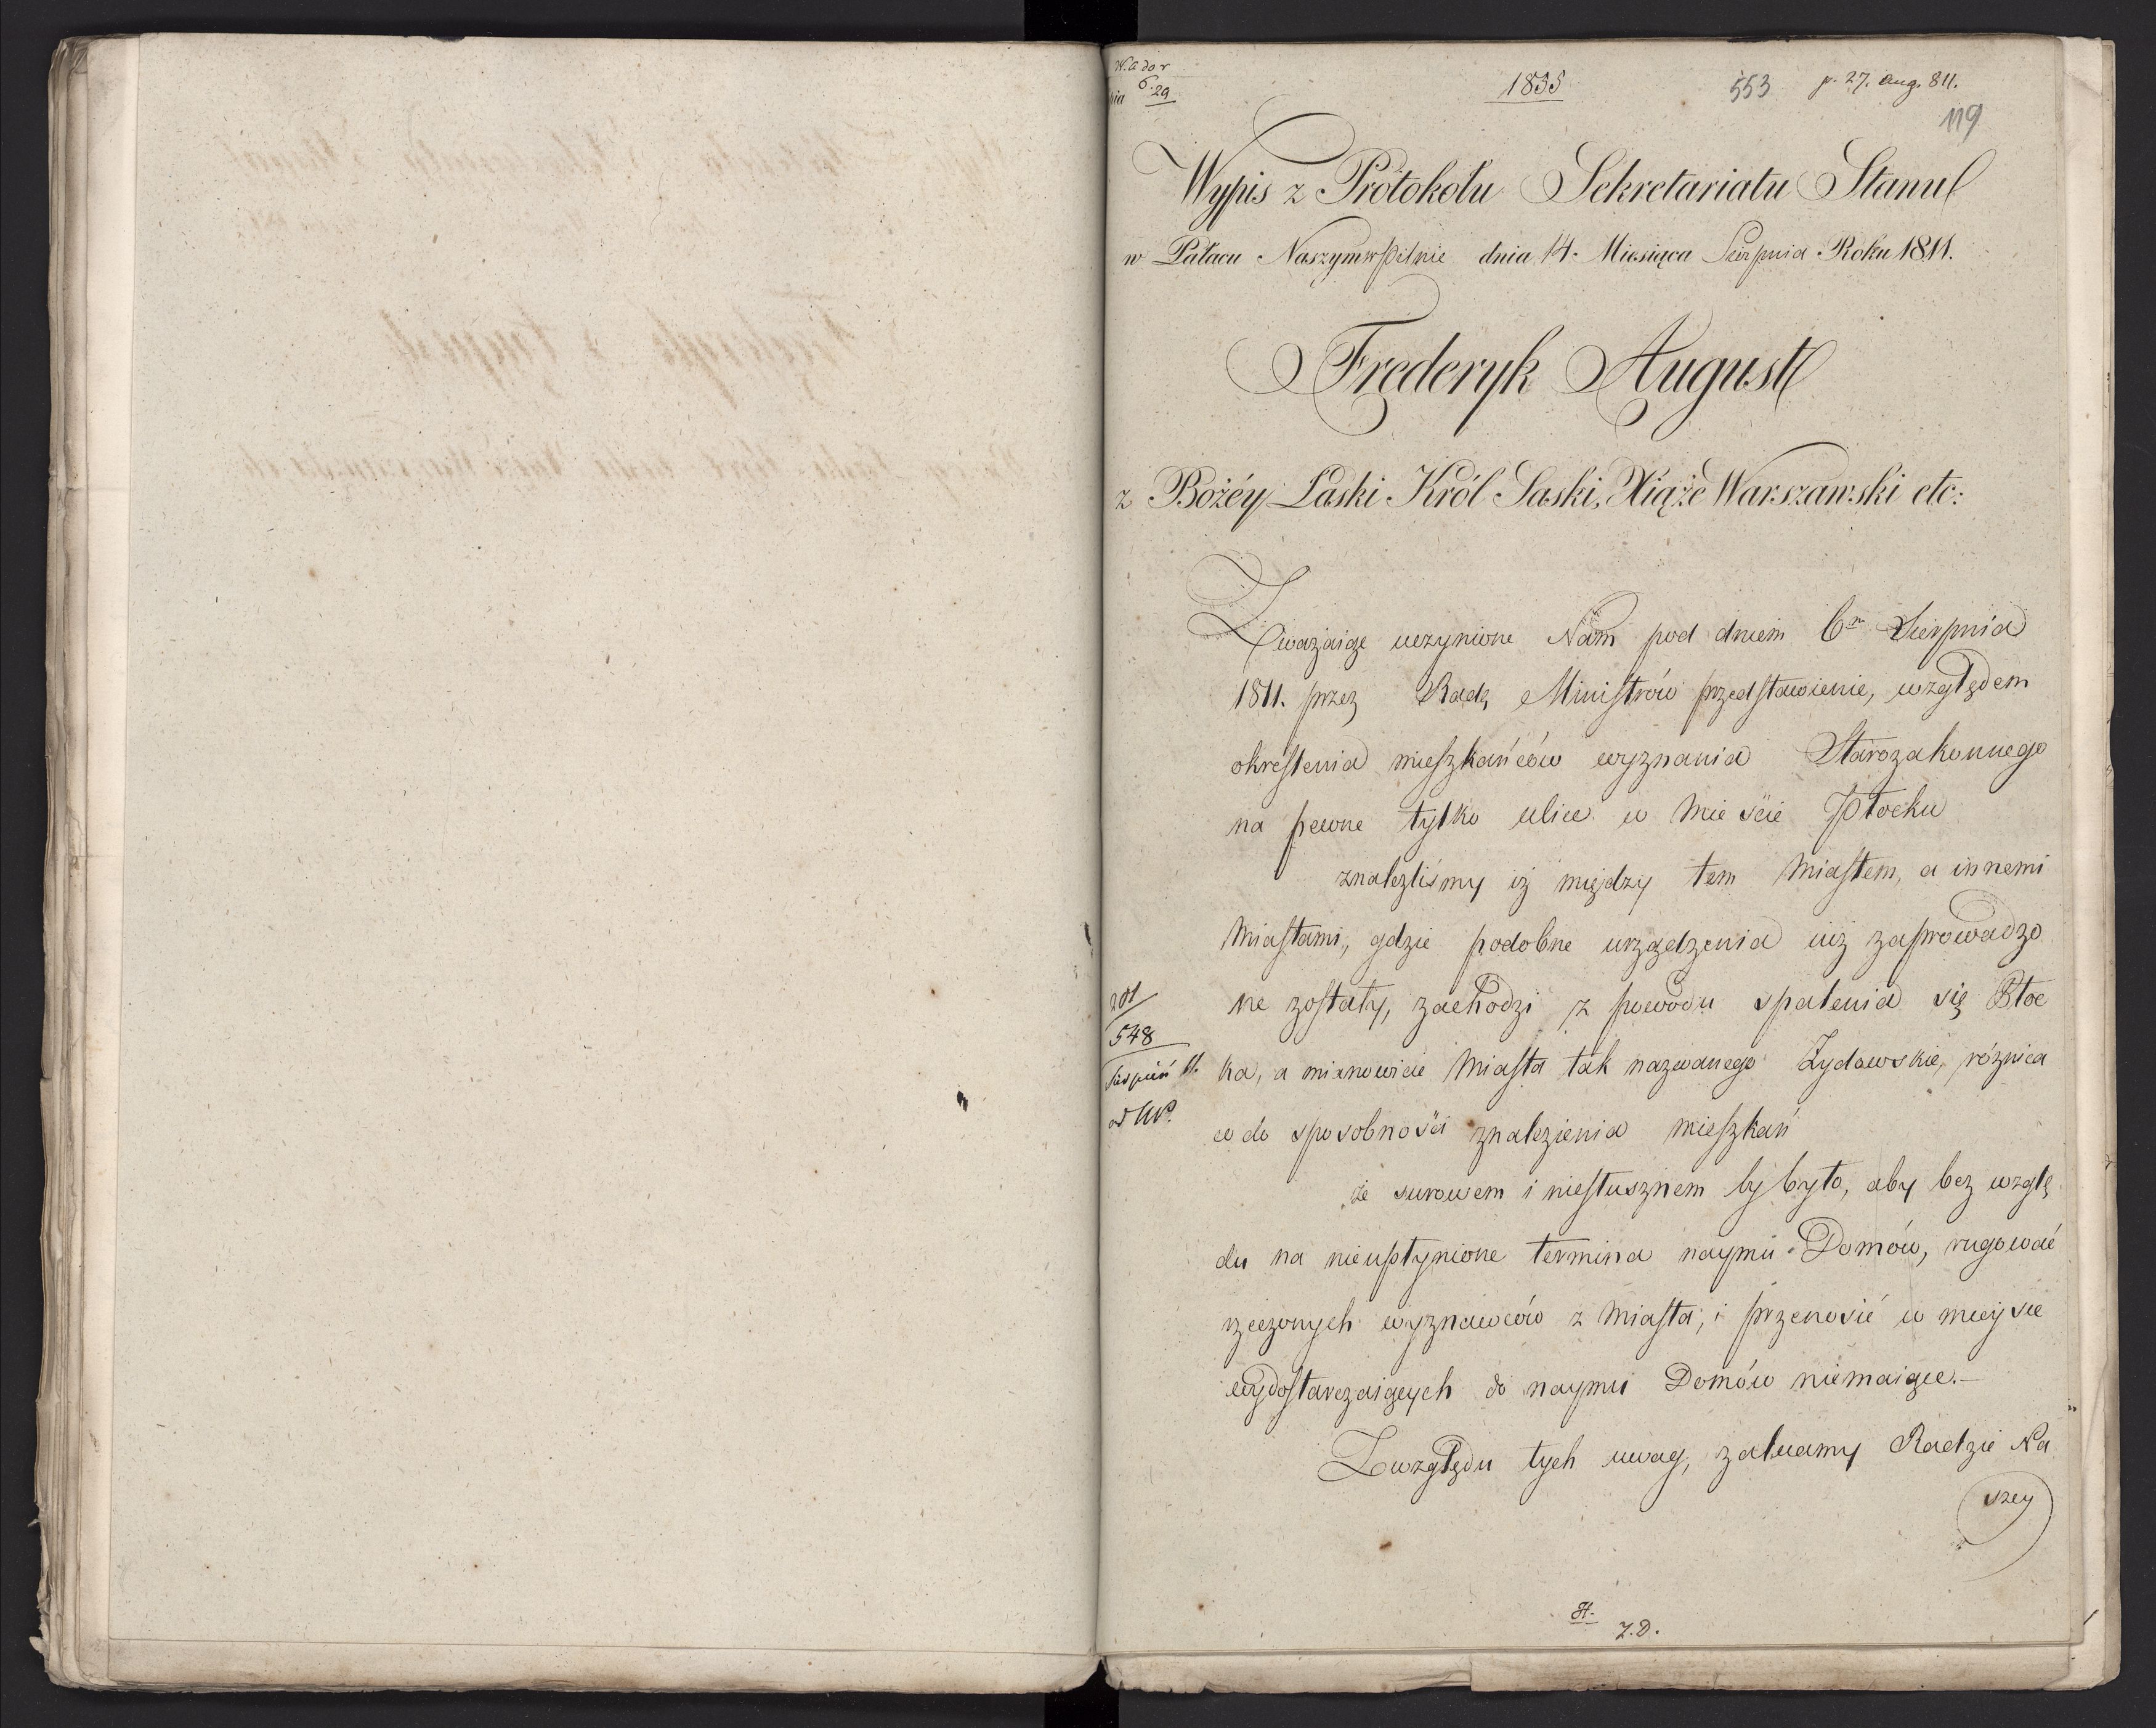 W. a dor
nia 6. 29
1835
553
p. 27. Aug. 811.
119
Wypis z Protokołu Sekretariatu Stanu
w Pałacu Naszym w Pilnie dnia 14. Miesiąca Sierpnia Roku 1811.
Frederyk August
z Bożéy Łaski Król Saski, Xiąże Warszawski etc:
Zważaiąc uczynione Nam pod dniem 6n Sierpnia
1811. przez Radę Ministrów przedstawienie, względem
okreslenia mieszkańców wyznania Starozakonnego
na pewne tylko ulice w Mieście Płocku
znalezliśmy iż między tem Miastem, a innemi
Miastami, gdzie podobne urządzenia iuż zaprowadzo
ne zostały, zachodzi z powodu spalenia się Płoc
ka, a mianowicie Miasta tak nazwanego Żydowskie, różnica
co do sposobności znalezienia mieszkań
że surowem i niesłusznem by było, aby bez wzglę
du na nieupłynione termina naymu Domów, rugować
rzeczonych wyznawców z Miasta, i przenosić w mieysce
wydostarczaiących do naymu Domów niemaiące.—
Z względu tych uwag, zalecamy Radzie Na
szey
201
548
Sierpień 11.
H.
Z.D.